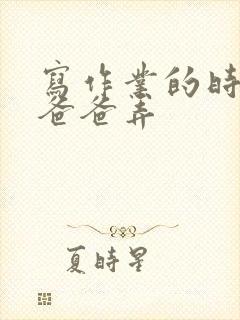 寫作業的時
爸爸弄
夏時星